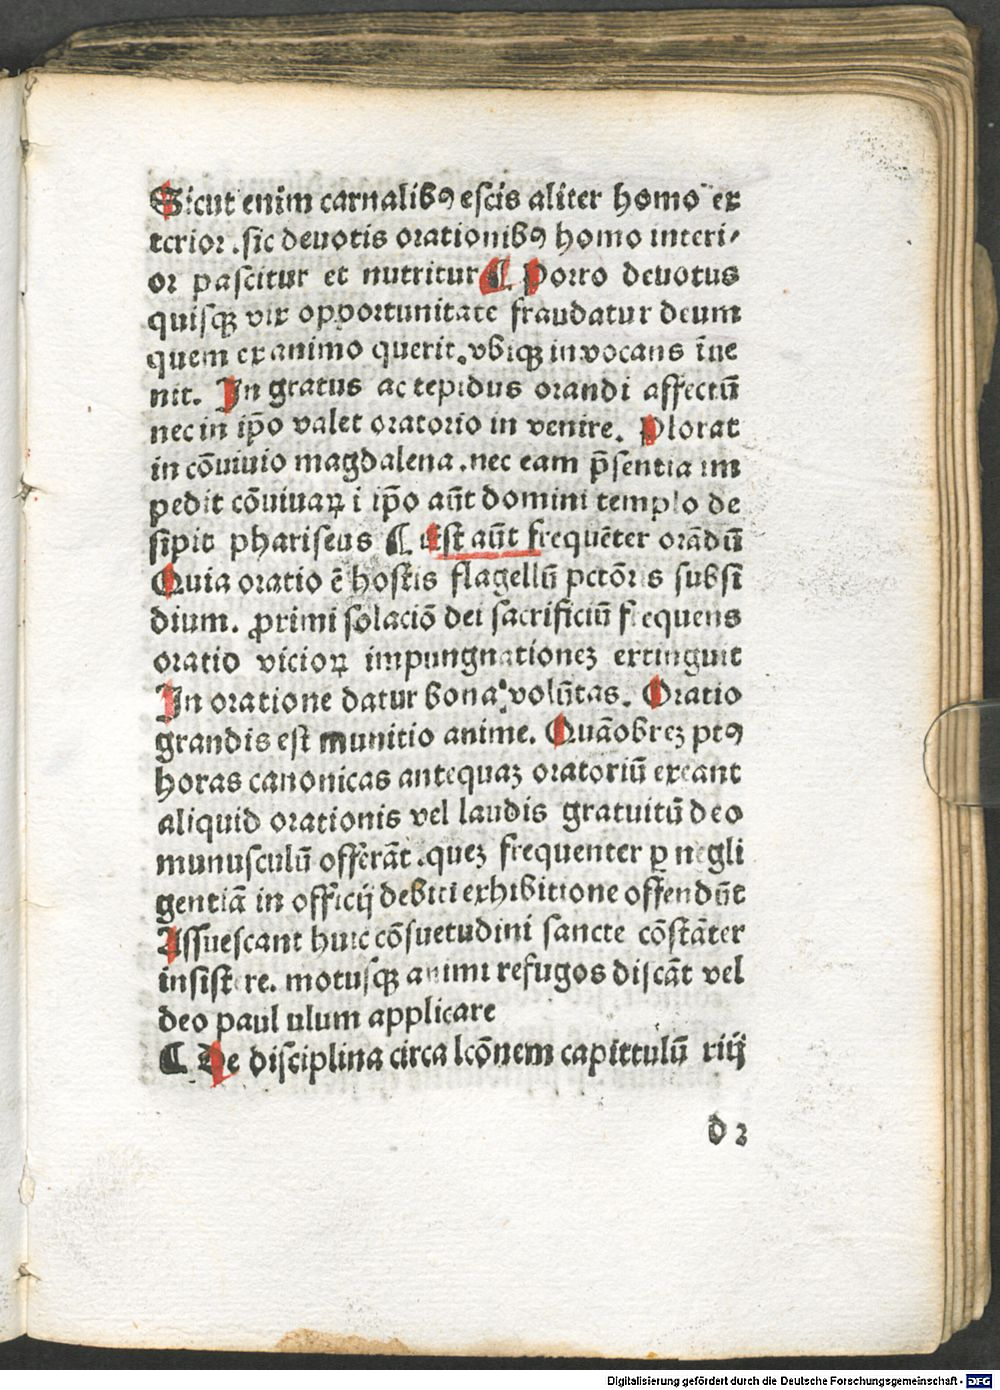 Sicut enim carnalibꝰ escis aliter homo ex
terior .sic deuotis orationibꝰ homo interi⸗
or pascitur et nutritur ¶ Porro deuotus
quisqꝫ vix opportunitate fraudatur deum
quem ex animo querit.vbiqꝫ in vocans īue
nit. In gratus ac tepidus orandi affectū
nec in ip̄o valet oratorio in venire. Plorat
in cōuiuio magdalena.nec eam p̄sentia im
pedit cōuiuaꝝ i ip̄o aūt domini templo de
sipit phariseus ¶ Est aūt frequēter orādū
Quia oratio ē hostis flagellū pctōris subsi
dium. ꝓximi solaciō dei sacrificiū frequens
oratio vicioꝝ impungnationeꝫ extinguit
In oratione datur bona volūtas. Oratio
grandis est munitio anime. Quāobreꝫ ptꝰ
horas canonicas antequaꝫ oratoriū exeant
aliquid orationis vel laudis gratuitū deo
munusculū offerāt .queꝫ frequenter ꝑ negli
gentiā in officij debiti exhibitione offendūt
Assuescant huic cōsuetudini sancte cōstāter
insistere. motusqꝫ animi refugos discāt vel
deo paul ulum applicare
¶ De disciplina circa lcōnem capittulū xiij
d 2
Digitalisierung gefördert durch die Deutsche Forschungsgemeinschaft - DFG